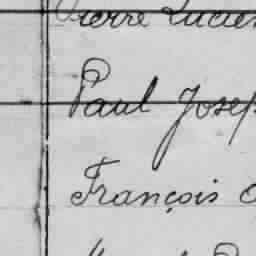 Pierre Lucien
Paul Josep
François